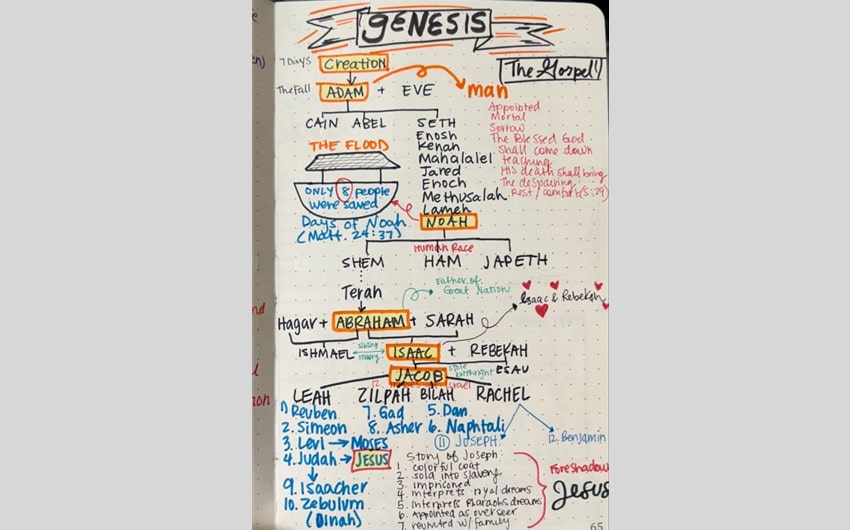 GENESIS
7 Days Creation
The Gospel!
The Fall ADAM + EVE
man
CAIN ABEL SETH
Enosh
Kenah
Mahalalel
Jared
Enoch
Methusalah
Lameh
NOAH
Appointed
Mortal
Sorrow
The Blessed God
Shall come down
teaching
His death shall bring
The despairing
Rest / comfort (5:29)
THE FLOOD
ONLY 8 people
were saved
Days of Noah
(Matt. 24:37)
Human Race
SHEM HAM JAPETH
Terah
Father of
Great Nation
Isaac & Rebekah
Hagar + ABRAHAM + SARAH
ISHMAEL ISAAC + REBEKAH
JACOB
stole
birthright
ESAU
12
LEAH ZILPAH BILAH RACHEL
1) Reuben 7. Gad 5. Dan
2. Simeon 8. Asher 6. Naphtali
3. Levi → MOSES
11 JOSEPH
12. Benjamin
4. Judah → JESUS
9. Isaacher
10. Zebulum
(Dinah)
Story of Joseph:
1. colorful coat
2. sold into slavery
3. imprisoned
4. Interprets royal dreams
5. Interprets Pharaohs dreams
6. Appointed as overseer
7. reunited w/ family
Foreshadow
Jesus
65